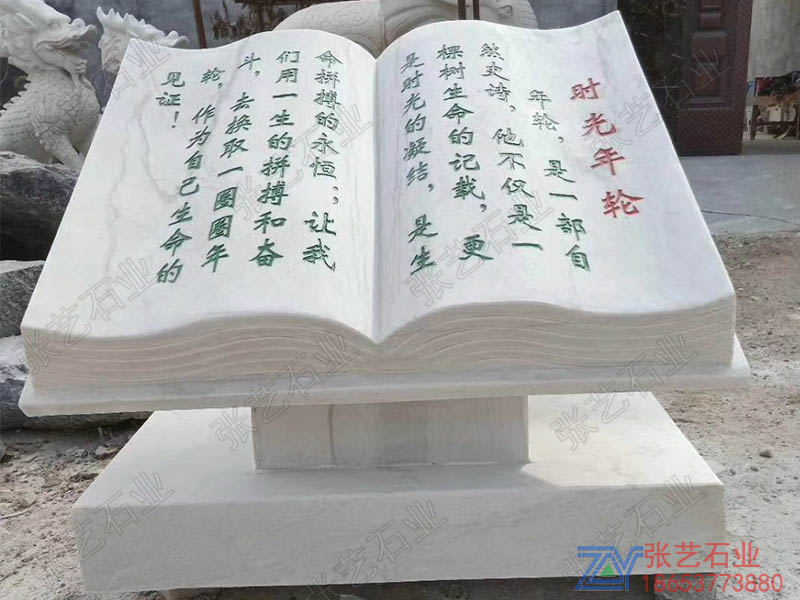 时光年轮
年轮，是一部自
然史诗，他不仅是一
棵树生命的记载，更
是时光的凝结，是生
命拼搏的永恒；让我
们用一生的拼搏和奋
斗，去换取一圈圈年
轮，作为自己生命的
见证！
张艺石业
张艺石业
18653773880